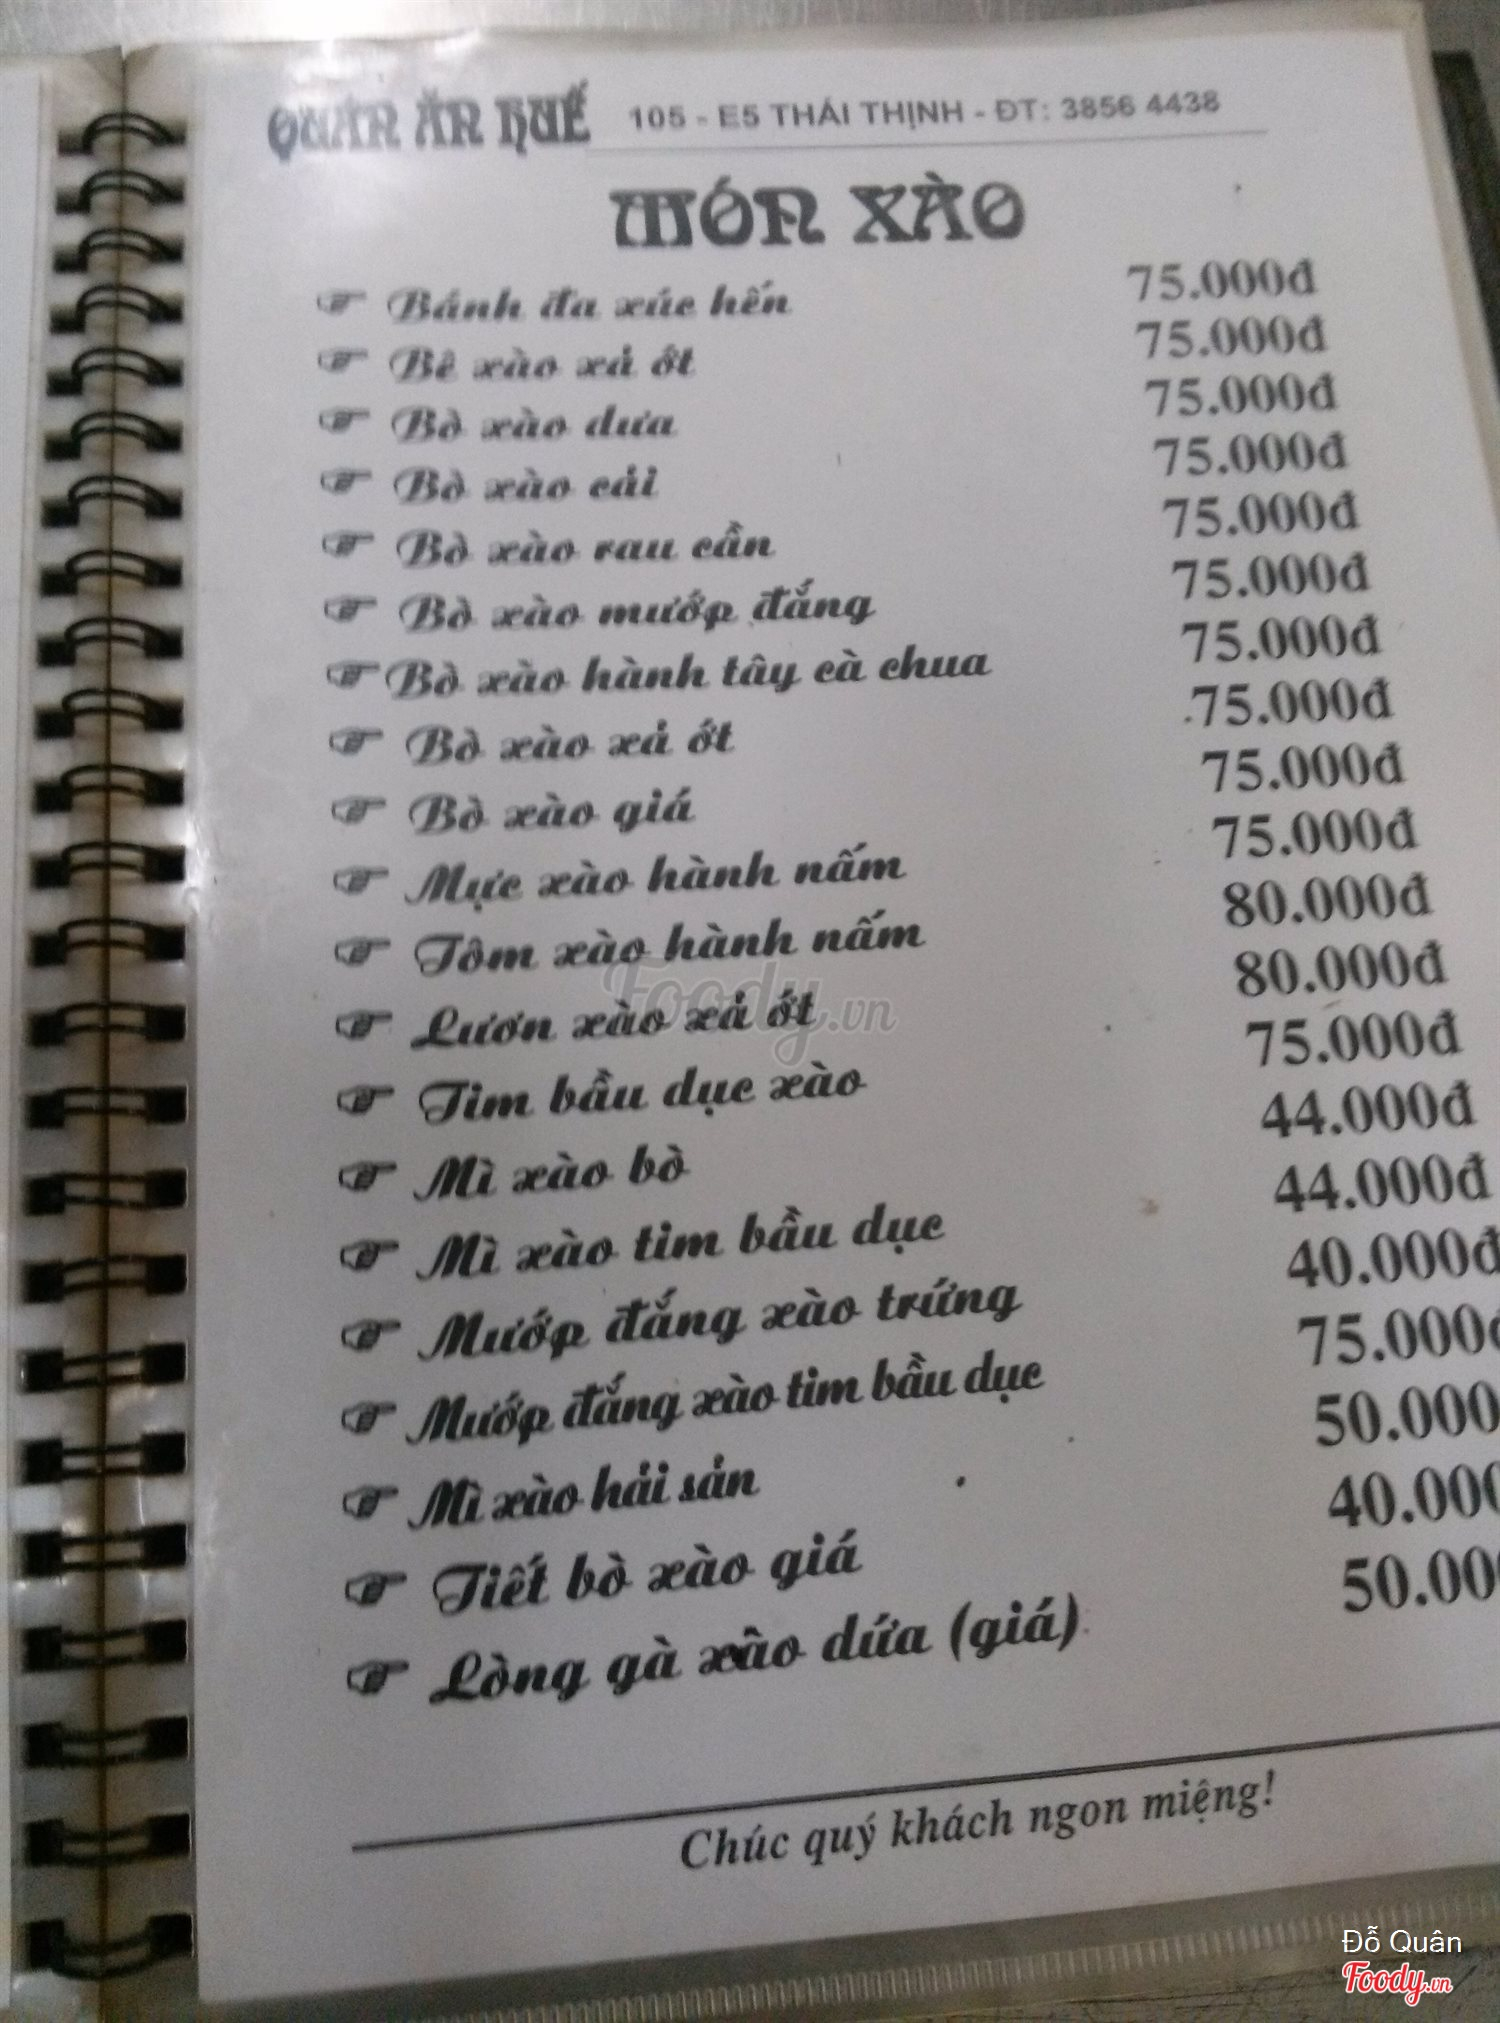 QUÁN ĂN HUẾ 105 - E5 THÁI THỊNH - ĐT: 3856 4438
MÓN XÀO
Bánh đa xúc hến 75.000đ
Bê xào xả ớt 75.000đ
Bò xào dưa 75.000đ
Bò xào cải 75.000đ
Bò xào rau cần 75.000đ
Bò xào mướp đắng 75.000đ
Bò xào hành tây cà chua 75.000đ
Bò xào xả ớt 75.000đ
Bò xào giá 75.000đ
Mực xào hành nấm 75.000đ
Tôm xào hành nấm 80.000đ
Lươn xào xả ớt 80.000đ
Tim bầu dục xào 75.000đ
Mì xào bò 44.000đ
Mì xào tim bầu dục 44.000đ
Mướp đắng xào trứng 40.000đ
Mướp đắng xào tim bầu dục 75.000đ
Mì xào hải sản 50.000
Tiết bò xào giá 40.000
Lòng gà xào dứa (giá) 50.00
Chúc quý khách ngon miệng!
Foody.vn
Đỗ Quân
Foody.vn